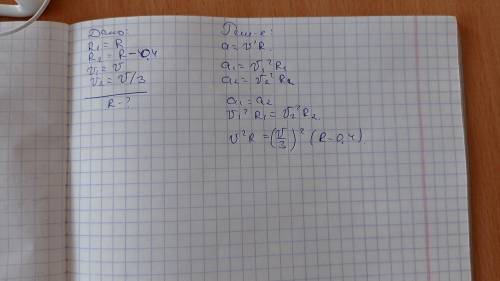 Дано:
R₁ = R
R₂ = R - 0,4
v₁ = v
v₂ = v/3
R - ?
Реш-е:
a = v²R
a₁ = v₁² R₁
a₂ = v₂² R₂
a₁ = a₂
v₁² R₁ = v₂² R₂
v²R = (v/3)² (R - 0,4)